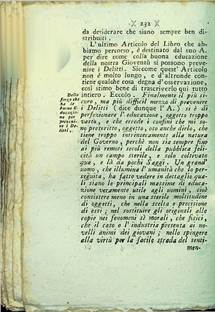 232
da desiderare che siano sempre ben di-
stribuiti.
L'ultimo Articolo del Libro che ab-
biamo percorso, è destinato dal suo A.
per dire come colla buona educazione
della nostra Gioventù si possono preve-
nire i Delitti. Siccome quest' Articolo
non è molto lungo, e d'altronde con-
tiene qualche cosa degna d'osservazione,
così stimo bene di trascriverlo qui tutto
intiero. Eccolo. Finalmente il più si-
curo, ma più difficil mezzo di prevenire
i Delitti (dice dunque l'A.) si è di
perfezionare l'educazione, oggetto troppo
vasto, e che eccede i confini che mi so-
no prescritto, oggetto, oso anche dirlo, che
tiene troppo intrinsecamente alla natura
del Governo, perchè non sia sempre fino
ai più remoti secoli della pubblica feli-
cità un campo sterile, e solo coltivato
qua, e là da pochi Saggi. Un grand'
uomo, che illumina l'umanità che lo per-
seguita, ha fatto vedere in dettaglio qua-
li siano le principali massime di educa-
zione veramente utile agli uomini, cioè
consistere meno in una sterile moltitudine
di oggetti, che nella scelta e precisione
di essi; nel sostituire gli originali alle
copie nei fenomeni sì morali, che fisici,
che il caso o l'industria presenta ai no-
velli animi dei giovani; nello spingere
alla virtù per la facile strada del senti-
men-